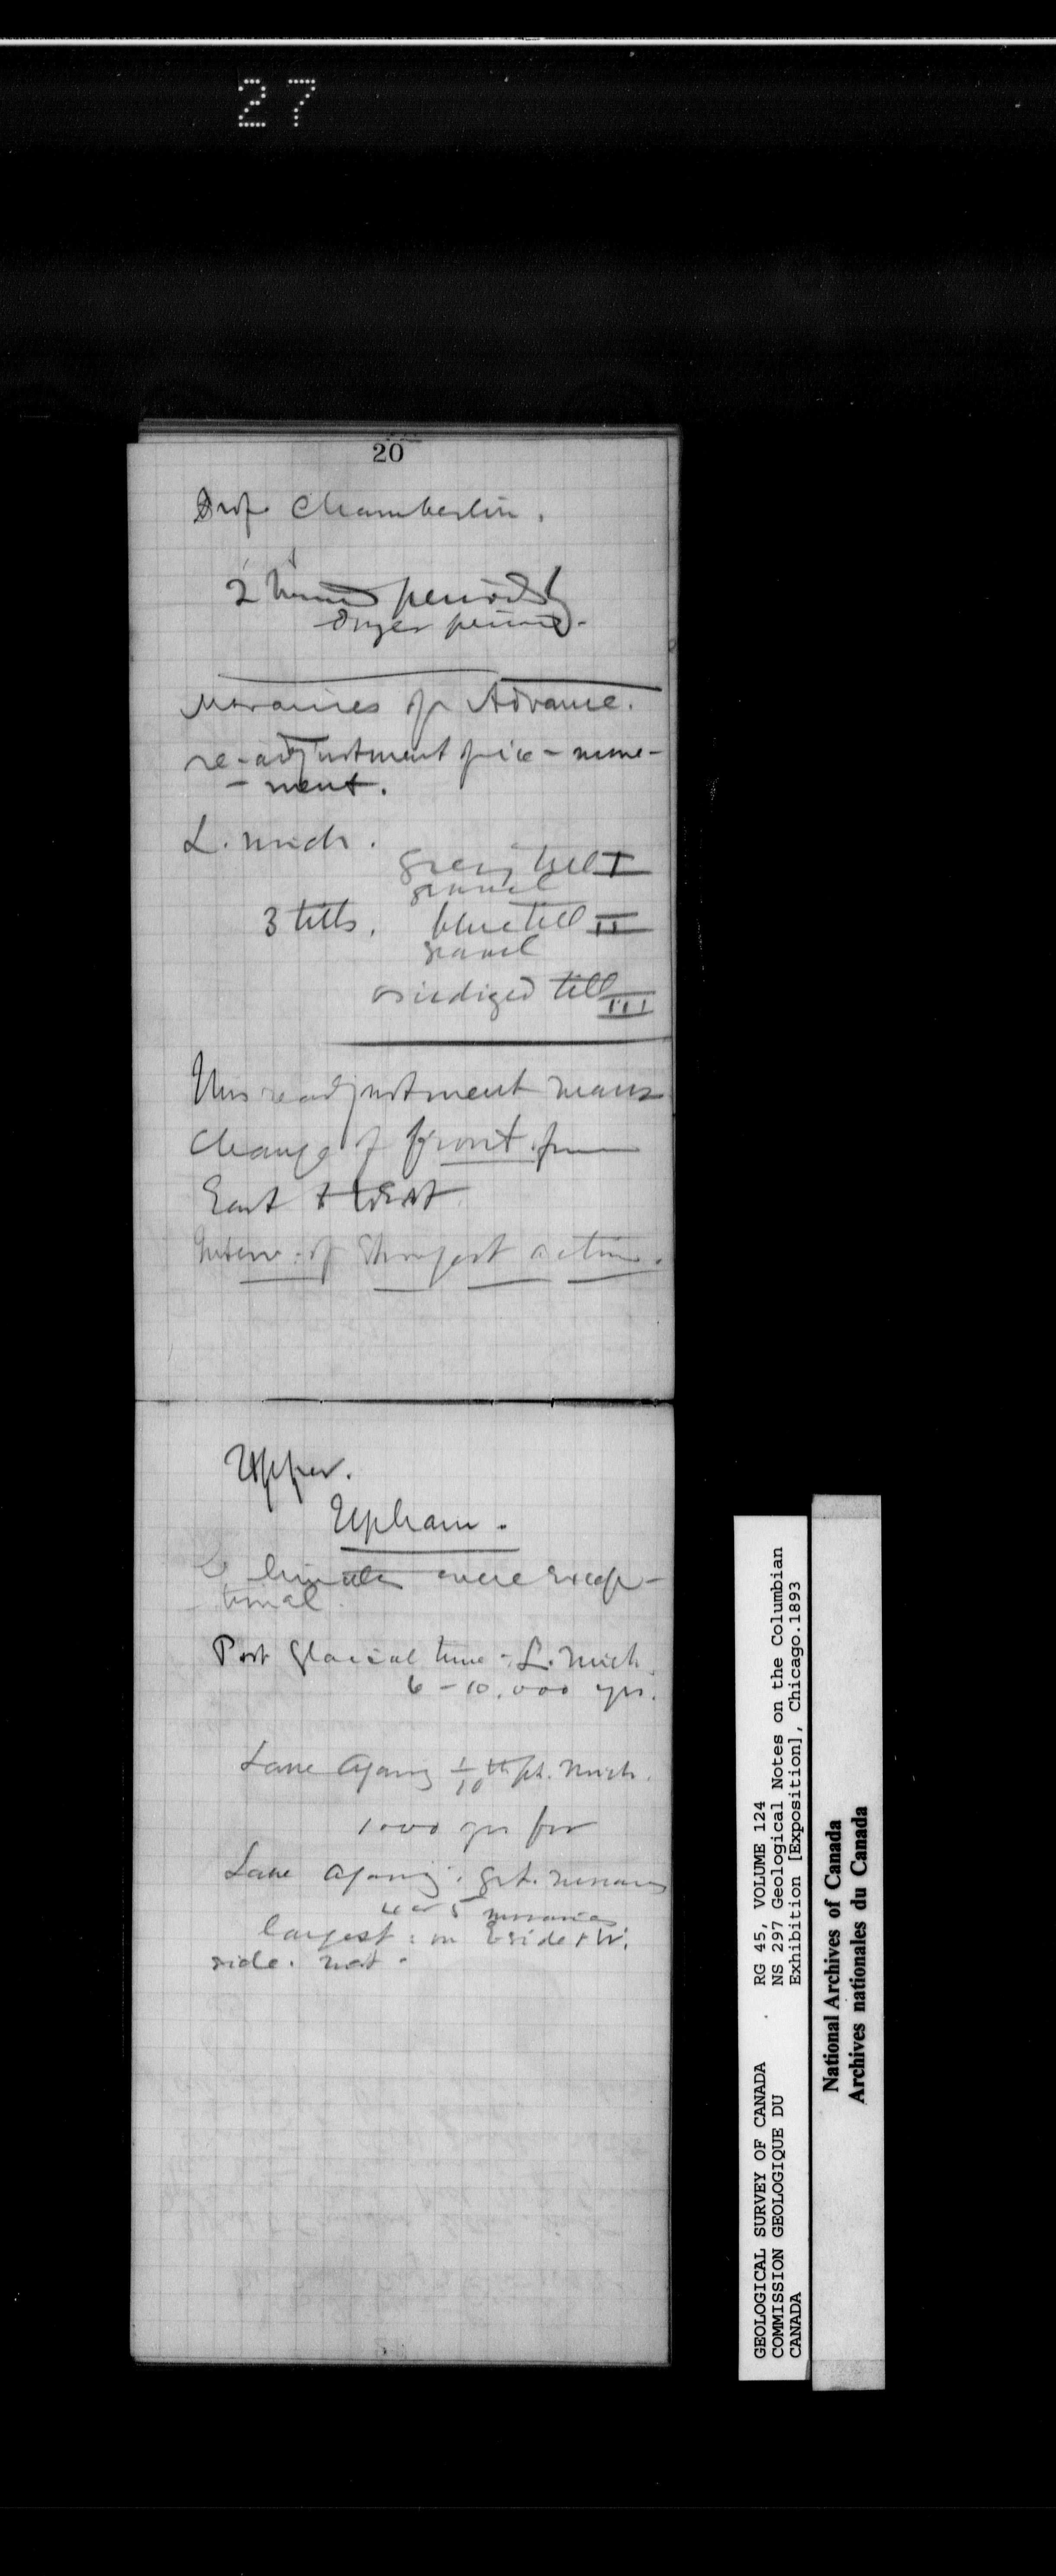 27
20
Prof. Chamberlin.
2 humid periods
Dryer period.
Moraines of Advance.
re-adjustment of ice-move-
-ment.
L. Mich.
grey till I
gravel
3 tills. blue till II
gravel
oxidized till III
This readjustment means
Change of front from
East & West
of Strongest action.
Upper.
Upham.
Climates were excep-
tional.
Post Glacial time - L. Mich.
6-10,000 yrs.
Lake Agassiz 1/10th pt. Mich.
1000 yrs for
Lake Agassiz: grt. moraines
4 or 5 moraines
largest: on E side & W.
side. not.
GEOLOGICAL SURVEY OF CANADA RG 45, VOLUME 124
COMMISSION GEOLOGIQUE DU NS 297 Geological Notes on the Columbian
CANADA Exhibition [Exposition], Chicago.1893
National Archives of Canada
Archives nationales du Canada